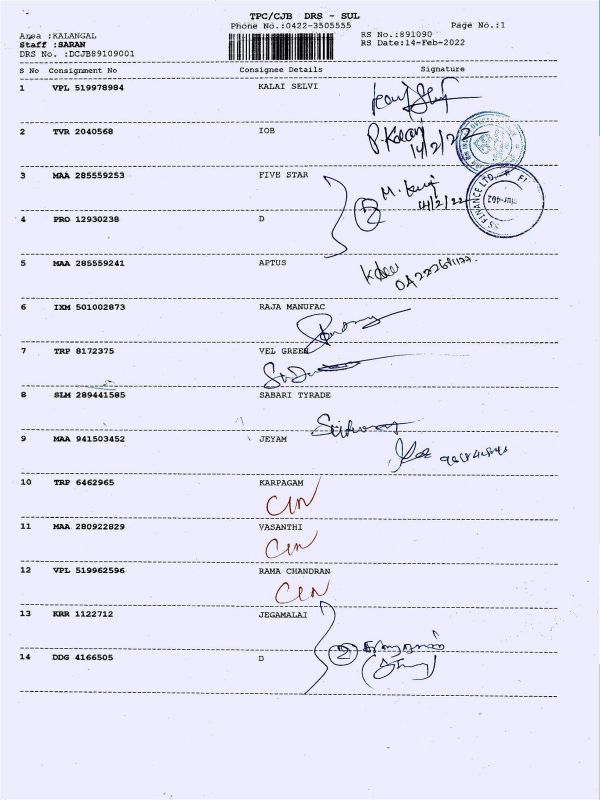 TPC/CJB DRS - SUL
Phone No.:0422-3505555 Page No.:1
Area :KALANGAL RS No.:891090
Staff :SARAN RS Date:14-Feb-2022
DRS No. :DCJB89109001
S No Consignment No Consignee Details Signature
1 VPL 519978984 KALAI SELVI
2 TVR 2040568 IOB
14/2/22
3 MAA 285559253 FIVE STAR
14/2/22
2
4 PRO 12930238 D
5 MAA 285559241 APTUS
6 IXM 501002873 RAJA MANUFAC
7 TRP 8172375 VEL GREEN
8 SLM 289441585 SABARI TYRADE
9 MAA 941503452 JEYAM
10 TRP 6462965 KARPAGAM
11 MAA 280922829 VASANTHI
12 VPL 519962596 RAMA CHANDRAN
13 KRR 1122712 JEGAMALAI
2
14 DDG 4166505 D